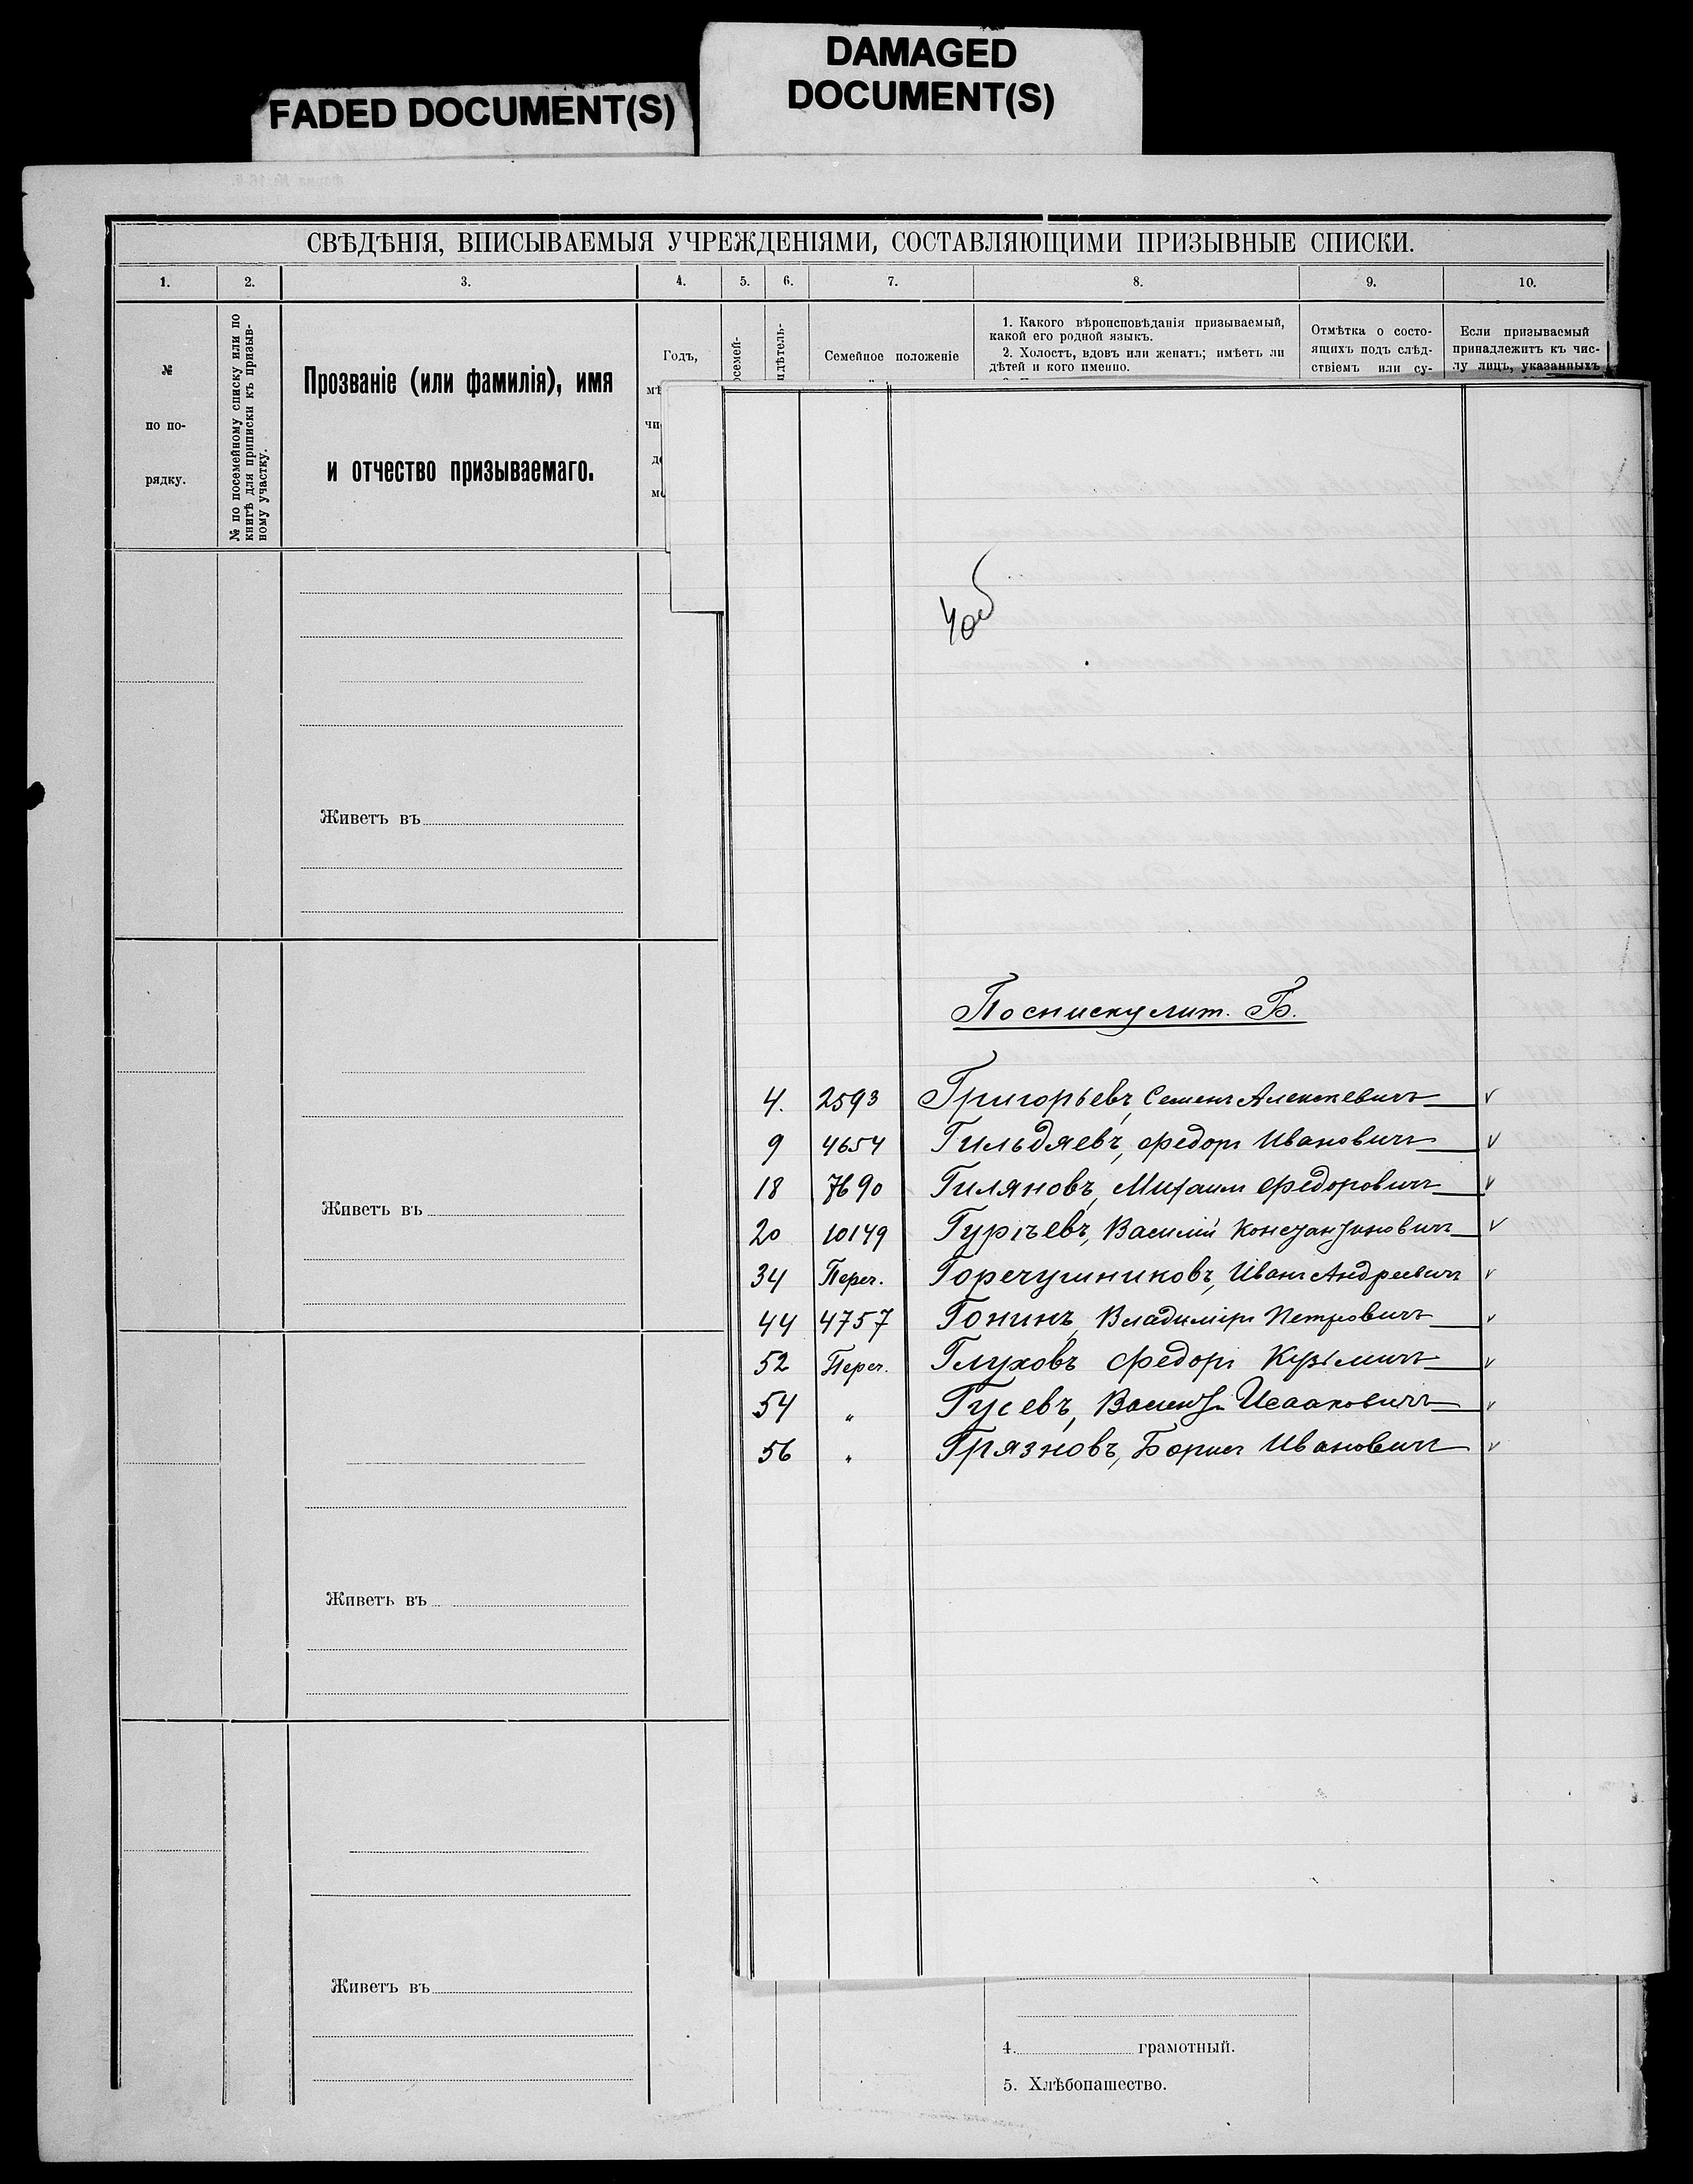 DAMAGED
DOCUMENT(S)
FADED DOCUMENT(S)
СВѢДѢНІЯ, ВПИСЫВАЕМЫЯ УЧРЕЖДЕНІЯМИ, СОСТАВЛЯЮЩИМИ ПРИЗЫВНЫЕ СПИСКИ.
1. 2. 3. 4. 5. 6. 7. 8. 9. 10.
№
по по-
рядку.
№ по посемейному списку или по
книгѣ для приписки къ призыв-
ному участку.
Прозваніе (или фамилія), имя
и отчество призываемаго.
Годъ,
Семейное положеніе
1. Какого вѣроисповѣданія призываемый,
какой его родной языкъ.
2. Холостъ, вдовъ или женатъ; имѣетъ ли
дѣтей и кого именно.
Отмѣтка о состо-
ящихъ подъ слѣд-
ствіемъ или су-
Если призываемый
принадлежитъ къ чис-
лу лицъ, указанныхъ
Живетъ въ
Живетъ въ
Живетъ въ
Живетъ въ
По списку лит. Б.
4. 2593 Григорьевъ, Семенъ Алексѣевичъ
9 4654 Гильдяевъ, Федоръ Ивановичъ
18 7690 Гиляновъ, Михаилъ Федоровичъ
20 10149 Гурьевъ, Василій Константиновичъ
34 Переч. Горечушниковъ, Иванъ Андреевичъ
44 4757 Гонинъ, Владиміръ Петровичъ
52 Переч. Глуховъ Федоръ Кузьмичъ
54 " Гусевъ, Исааковичъ
56 " Грязновъ, Борисъ Ивановичъ
4. грамотный.
5. Хлѣбопашество.